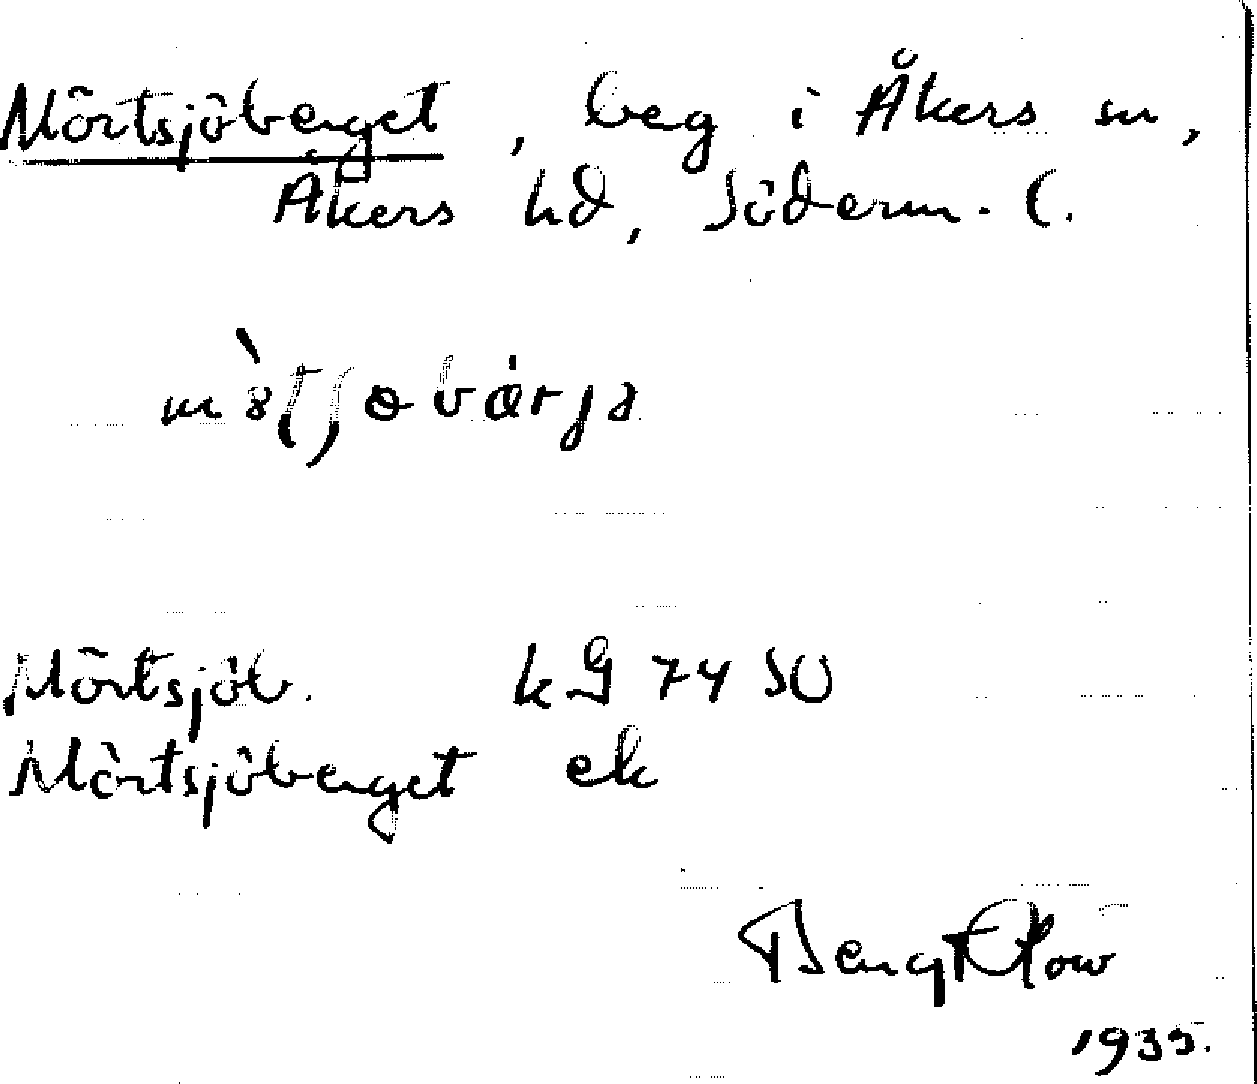 Mörtsjöberget, beg i Åkers sn,
Åkers hd, Söderm. l.
Mörtsjöb. kG 74 SO
Mörtsjöberget ek
Bengt
1935.